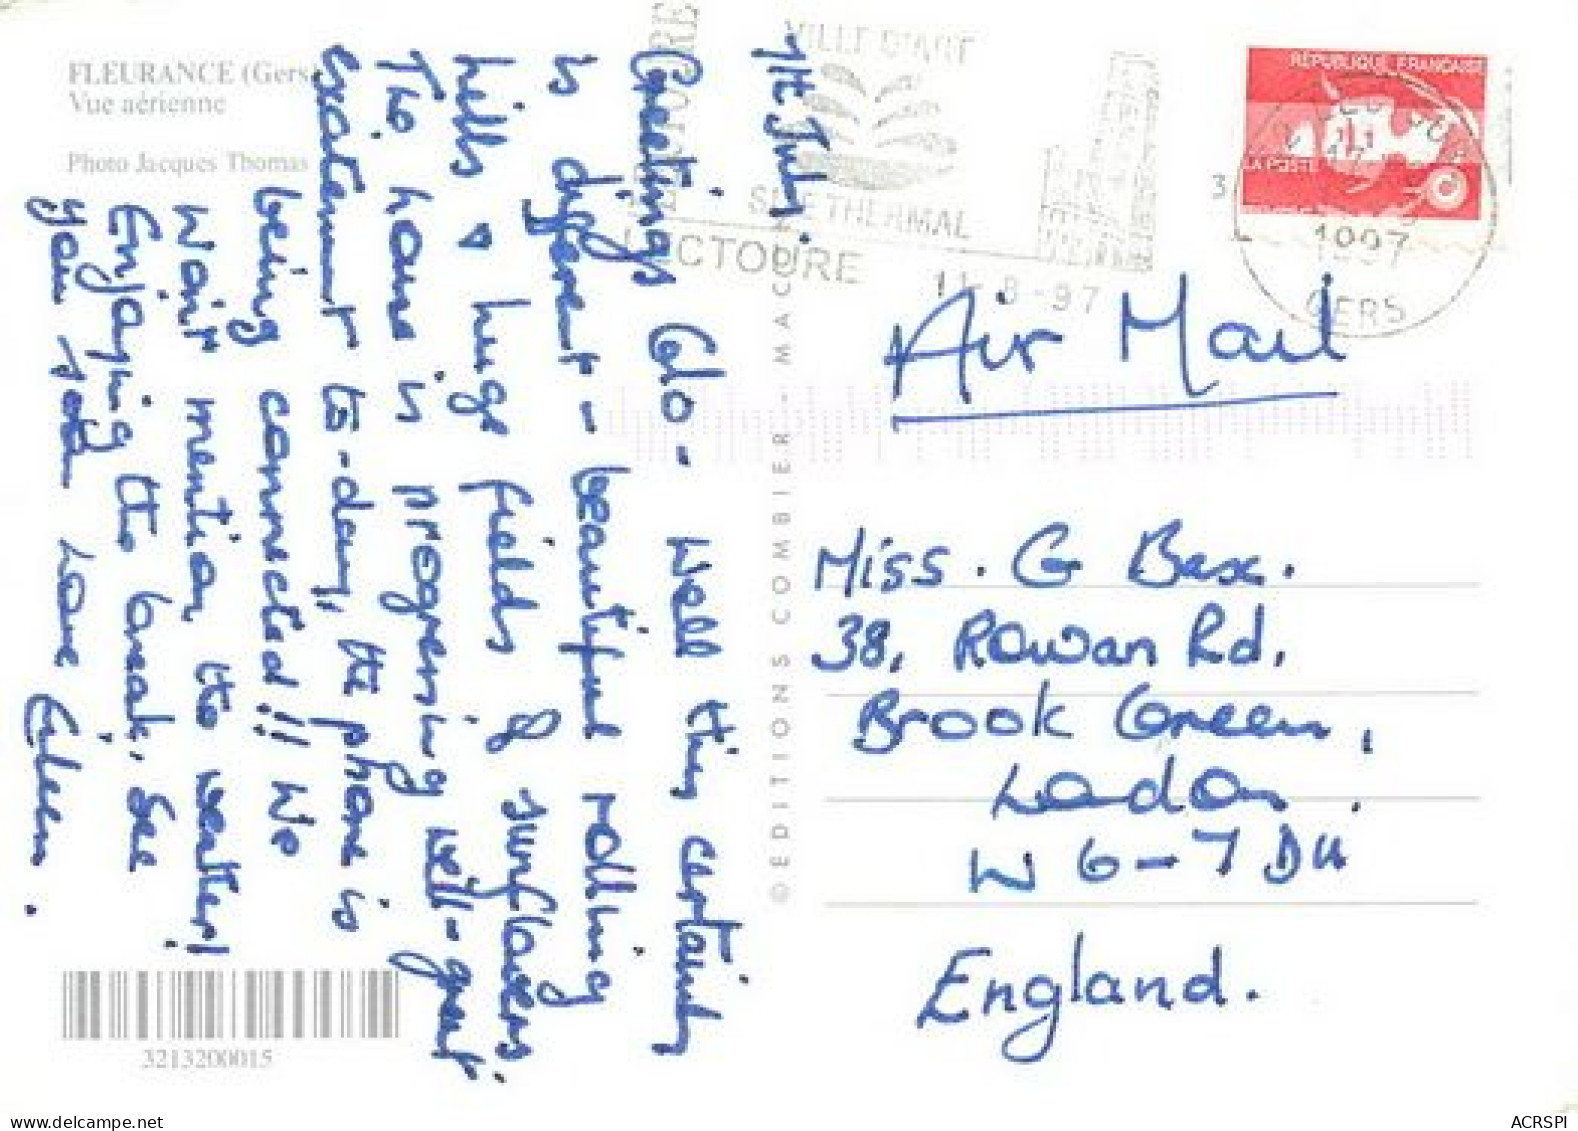 FLEURANCE (Gers)
Vue aérienne
Photo Jacques Thomas
7th July.
Greetings Glo - Well this certainly
is different - beautiful rolling
hills & huge fields of sunflowers.
The house is progressing well - great
excitement to-day, the phone is
being connected!! We
won't mention the weather!
Enjoying the break. See
you soon Love Eileen.
3213200015
© EDITIONS COMBIER - MACON
LECTOURE
VILLE D'ART
SITE THERMAL
LECTOURE
11-8-97
RÉPUBLIQUE FRANÇAISE
LA POSTE
1997
GERS
Air Mail
Miss. G Bax.
38, Rowan Rd.
Brook Green,
London.
W6-7DU
England.
ACRSPI